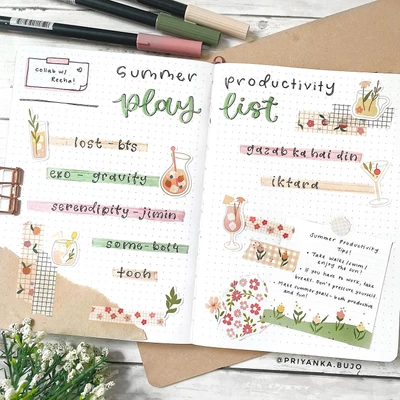 collab w/
Recha!
summer productivity
play list
lost - bts
exo - gravity
serendipity - jimin
some - bol4
tooh
gazab ka hai din
iktara
Summer Productivity
Tips!
• Take walks/swim/
enjoy the sun!
• If you have to work, take
breaks. Don't pressure yourself
• Make summer goals - both productive
and fun!
@PRIYANKA.BUJO